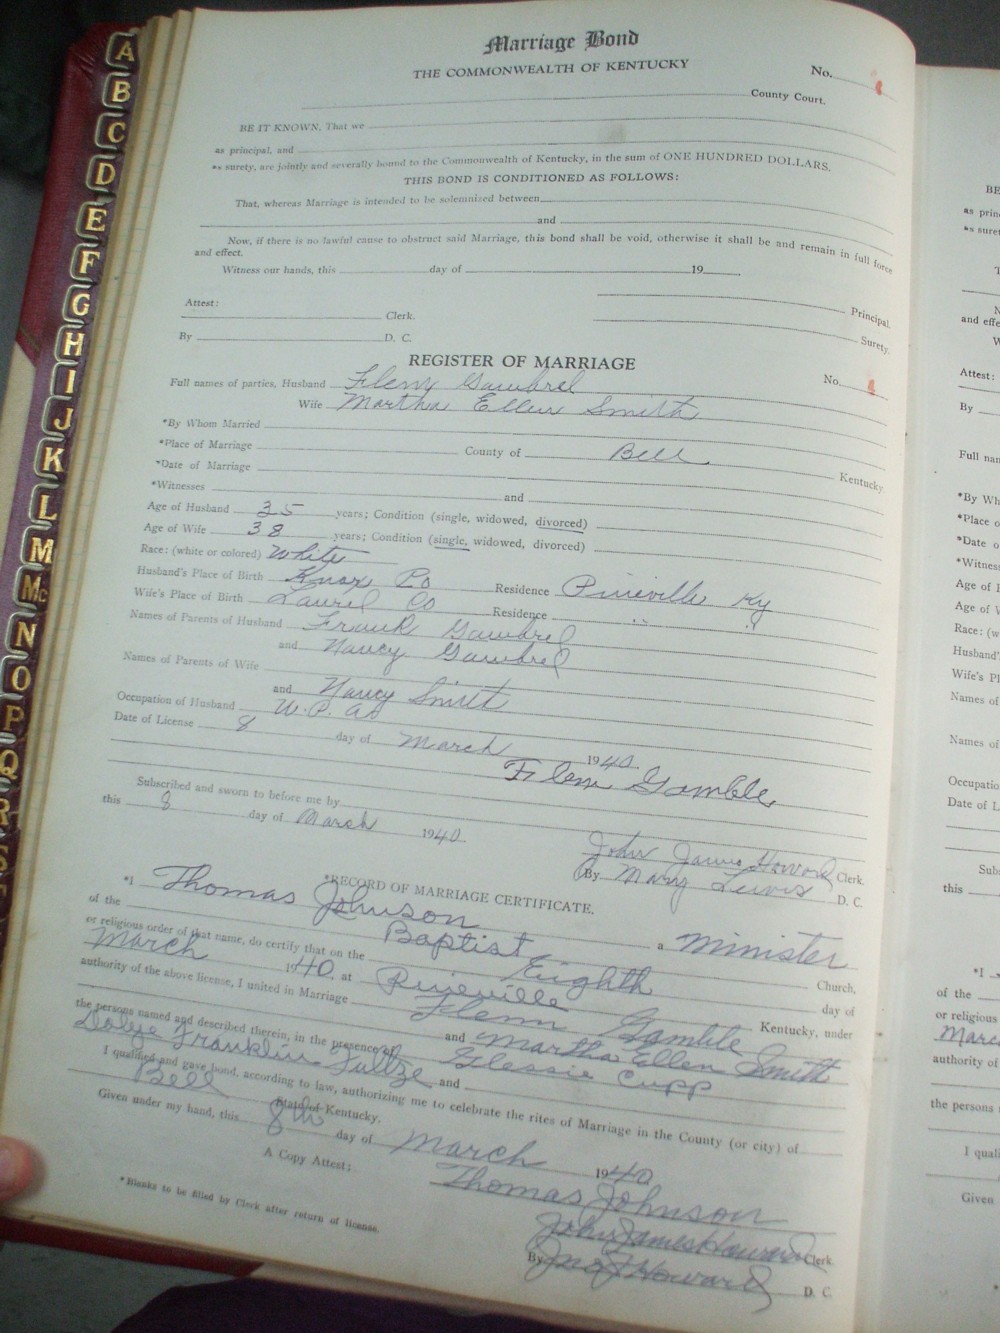 Marriage Bond
THE COMMONWEALTH OF KENTUCKY
No. 4
County Court.
BE IT KNOWN, That we
as principal, and
as surety, are jointly and severally bound to the Commonwealth of Kentucky, in the sum of ONE HUNDRED DOLLARS.
THIS BOND IS CONDITIONED AS FOLLOWS:
That, whereas Marriage is intended to be solemnized between
and
Now, if there is no lawful cause to obstruct said Marriage, this bond shall be void, otherwise it shall be and remain in full force
and effect.
Witness our hands, this day of 19
Principal.
Attest:
Clerk.
Surety.
By D. C.
REGISTER OF MARRIAGE
Full names of parties, Husband Flem Gambrel No. 4
Wife Martha Ellen Smith
*By Whom Married
*Place of Marriage County of Bell Kentucky.
*Date of Marriage
*Witnesses and
Age of Husband 35 years; Condition (single, widowed, divorced)
Age of Wife 38 years; Condition (single, widowed, divorced)
Race: (white or colored) White
Husband's Place of Birth Knox Co Residence Pineville Ky
Wife's Place of Birth Laurel Co Residence " "
Names of Parents of Husband Frank Gambrel
and Nancy Gambrel
Names of Parents of Wife
and Nancy Smith
Occupation of Husband W.P.A.
Date of License 8 day of March 1940.
Flem Gamble
Subscribed and sworn to before me by
this 8 day of March 1940.
John James Howard Clerk.
By Mary Lewis D. C.
*RECORD OF MARRIAGE CERTIFICATE.
*I Thomas Johnson a Minister
of the Baptist Church,
or religious order of that name, do certify that on the Eighth day of
March 1940. at Pineville Kentucky, under
authority of the above license, I united in Marriage Flem Gamble
and Martha Ellen Smith
the persons named and described therein, in the presence of
Franklin Fultze and Glessie Cupp
I qualified and gave bond, according to law, authorizing me to celebrate the rites of Marriage in the County (or city) of
Bell State of Kentucky.
Given under my hand, this 8th day of March 1940
Thomas Johnson
A Copy Attest:
John James Howard Clerk
*Blanks to be filled by Clerk after return of license.
By Jno J Howard D. C.
A
B
C
D
E
F
G
H
I
J
K
L
M
Mc
N
O
P
Q
R
S
BE
as prin
as suret
and effe
Attest:
By
Full nan
*By Wh
*Place o
*Date o
*Witness
Age of H
Age of W
Race: (w
Husband'
Wife's Pl
Names of
Names of
Occupation
Date of L
Subs
this
*I
of the
or religious
Marc
authority of
the persons
I quali
Given